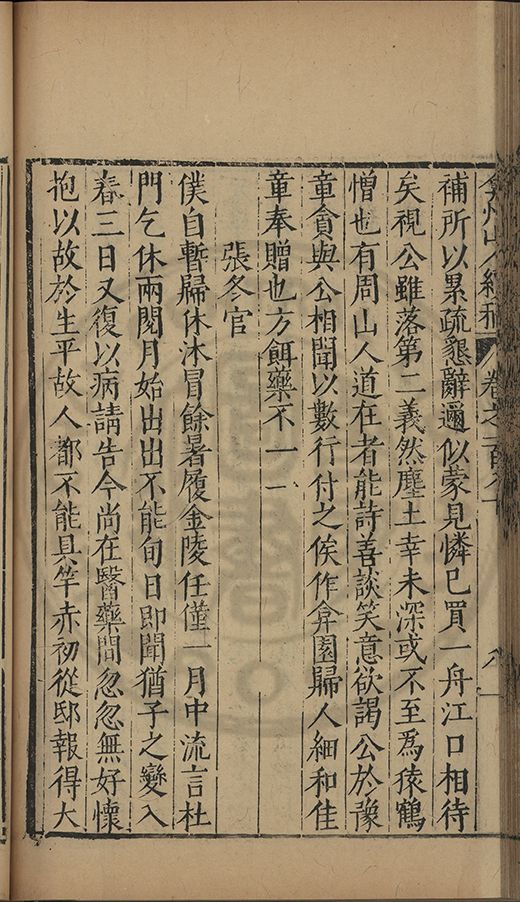 弇州山人續稿 卷之一百八十
補所以累疏懇辭邇似蒙見憐已買一舟江口相待
矣視公雖落第二義然塵土幸未深或不至為猿鶴
憎也有周山人道在者能詩善談笑意欲謁公於豫
章貪與公相聞以數行付之俟作弇園歸人細和佳
章奉贈也方餌藥不一一
張冬官
僕自暫歸休沐冒餘暑履金陵任僅一月中流言杜
門乞休兩閱月始出出不能旬日即聞猶子之變入
春三日又復以病請告今尚在醫藥間忽忽無好懷
抱以故於生平故人都不能具竿赤初從邸報得大